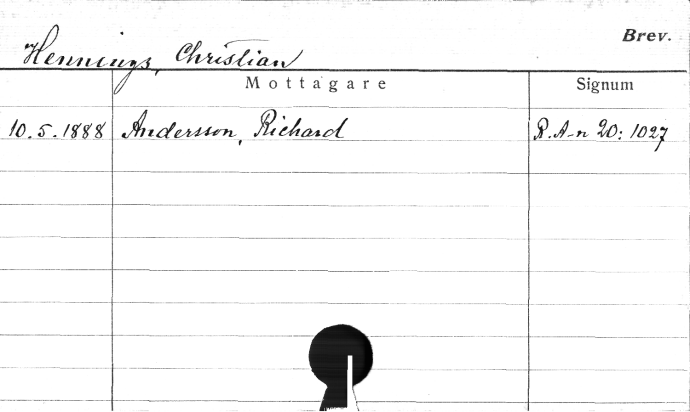 Brev.
Hennings, Christian
Mottagare Signum
10.5.1888 Andersson, Richard R.A-n 20: 1027